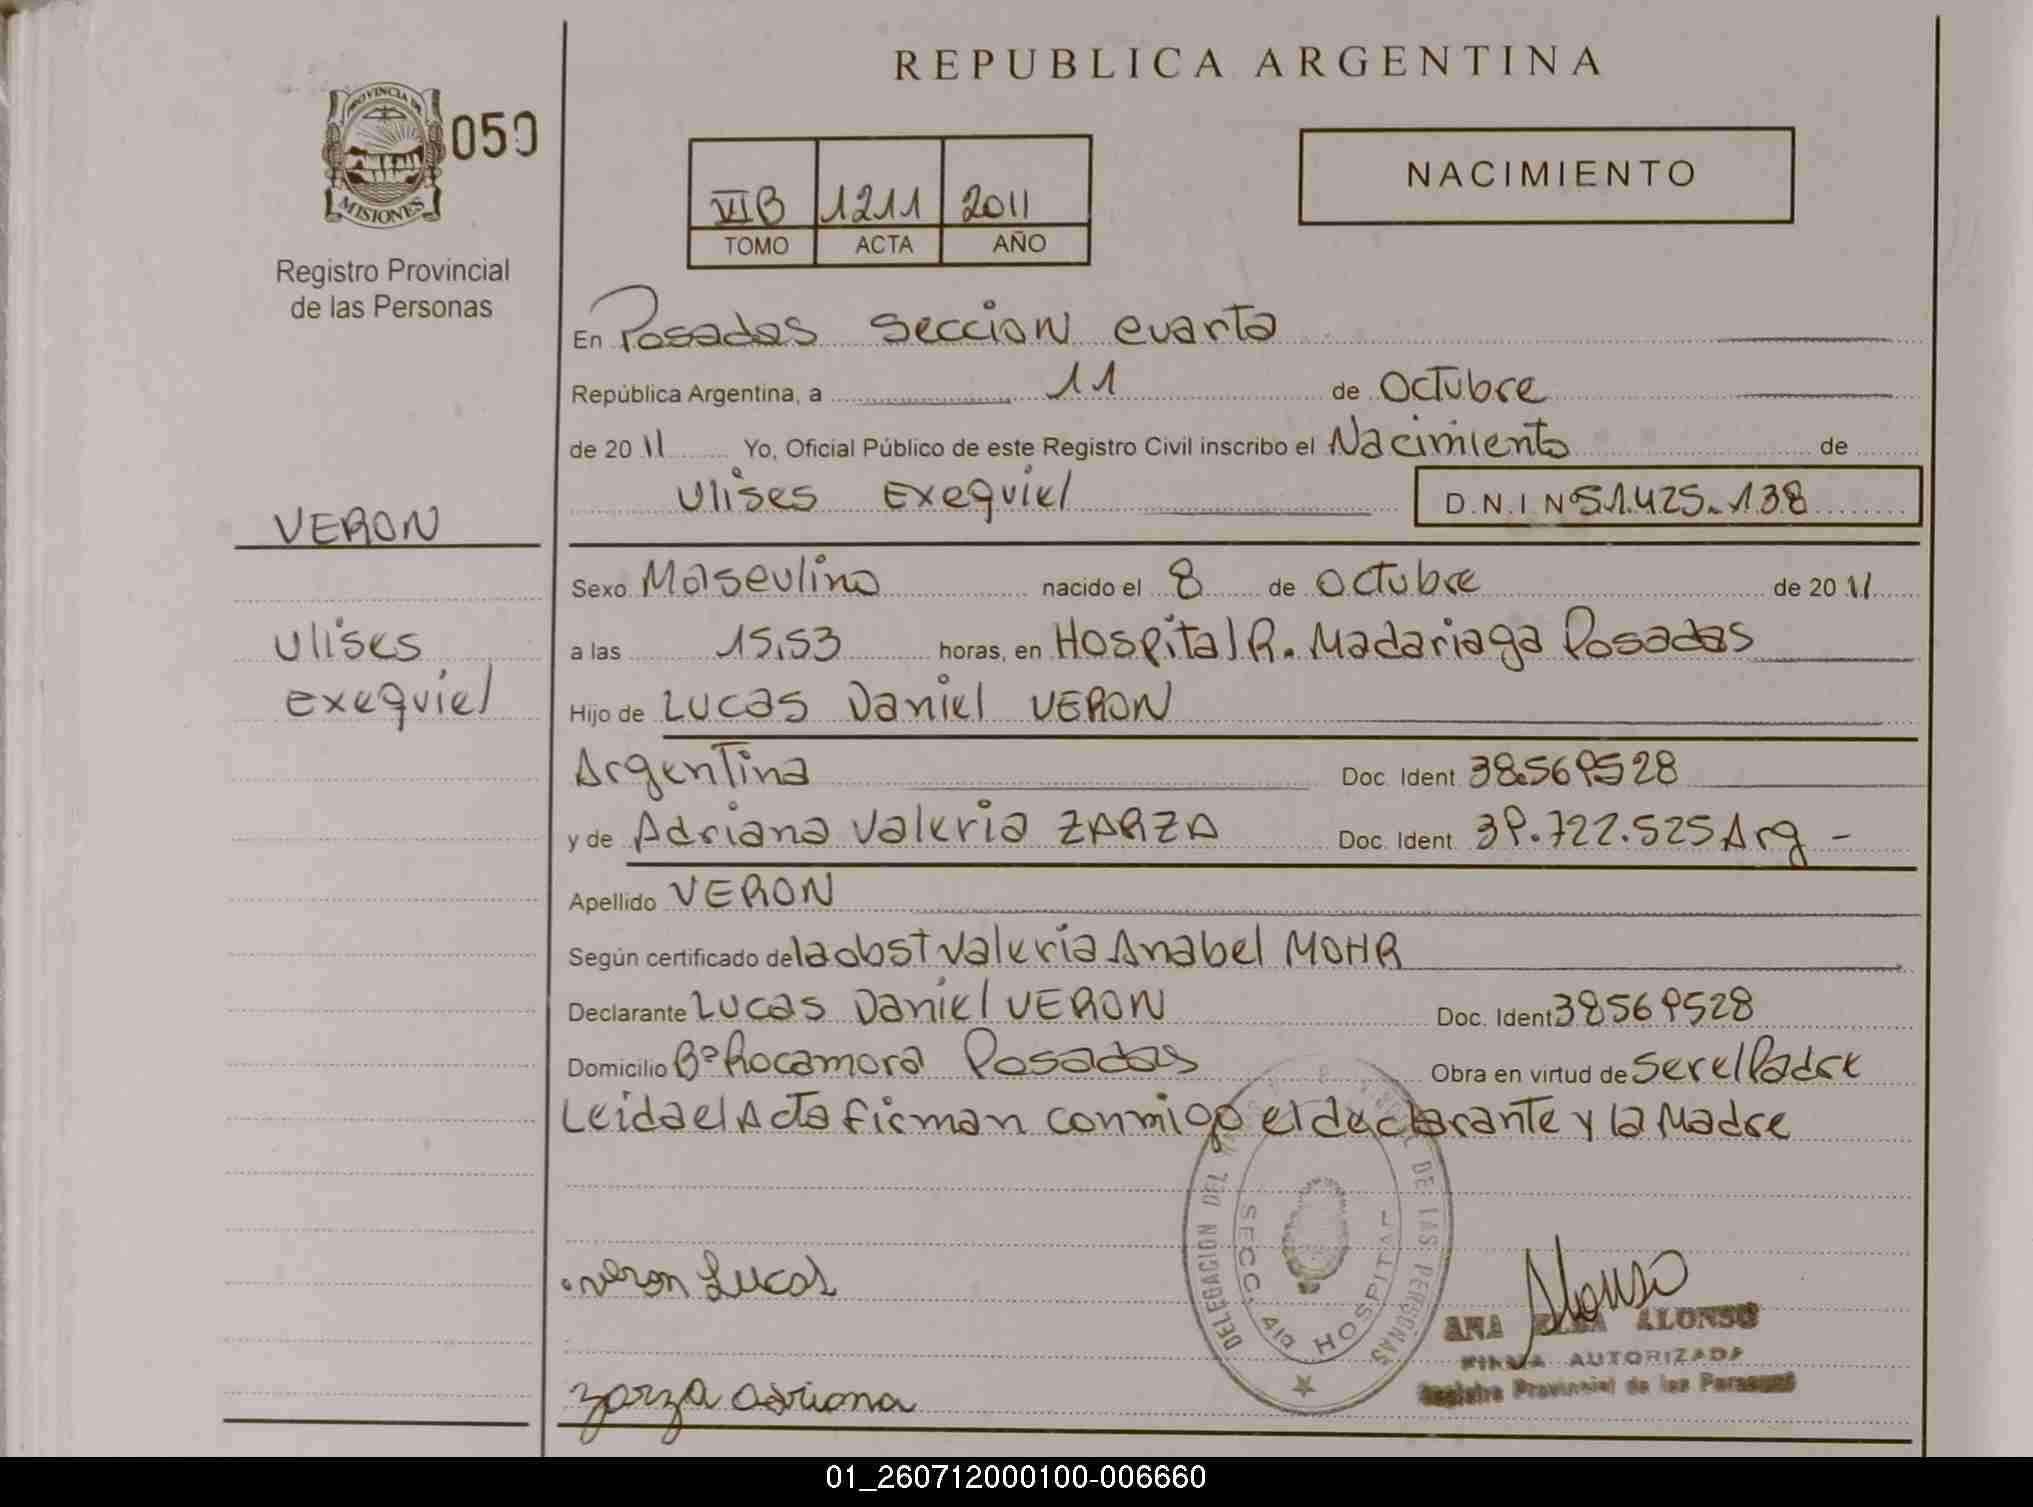 REPUBLICA ARGENTINA
PROVINCIA DE
MISIONES
050
Registro Provincial
de las Personas
VIB 1211 2011
TOMO ACTA AÑO
NACIMIENTO
En Posadas Seccion cuarta
República Argentina, a 11 de Octubre
de 2011 Yo, Oficial Público de este Registro Civil inscribo el Nacimiento de
Ulises Exequiel D.N.I Nº 51.425.138
VERON
Ulises
exequiel
Sexo Masculino nacido el 8 de octubre de 2011
a las 15,53 horas, en Hospital R. Madariaga Posadas
Hijo de Lucas Daniel VERON
Argentina Doc. Ident. 38.569528
y de Adriana Valeria ZARZA Doc. Ident. 39.722.525 Arg -
Apellido VERON
Según certificado de la obst Valeria Anabel MOHR
Declarante Lucas Daniel VERON Doc. Ident 38569528
Domicilio Bº Rocamora Posadas Obra en virtud de ser el Padre
Leida el Acta firman conmigo el declarante y la Madre
DELEGACION DEL DE LAS PERSONAS
SECC. HOSPITAL
veron Lucas
Alonso
ANA ELBA ALONSO
FIRMA AUTORIZADA
Registro Provincial de las Personas
zarza adriana
01_260712000100-006660